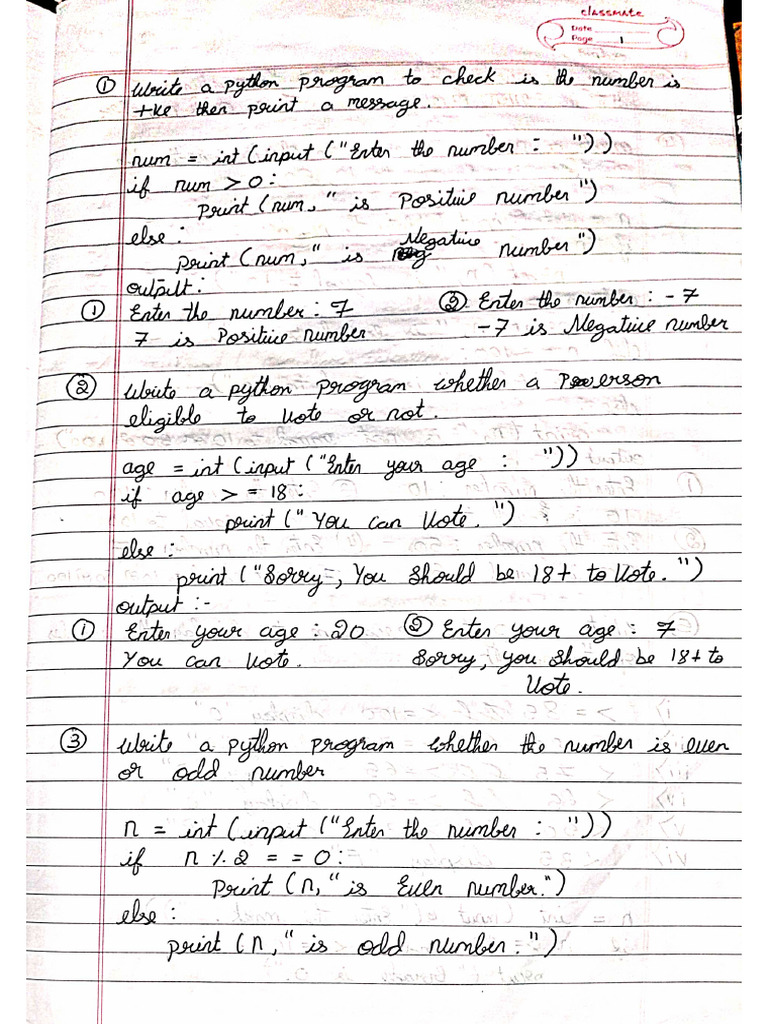 classmate
Date
Page 1
① Write a python program to check is the number is
+ve then print a message.
num = int (input ("Enter the number : "))
if num > 0 :
print (num, " is Positive number")
else :
print (num, " is Negative number")
output :
① Enter the number : 7 ② Enter the number : - 7
7 is Positive number - 7 is Negative number
② Write a python program whether a person
eligible to vote or not.
age = int (input ("Enter your age : "))
if age > = 18 :
print (" You can vote. ")
else :
print ("Sorry, You should be 18+ to vote. ")
output :-
① Enter your age : 20 ② Enter your age : 7
You can vote. Sorry, you should be 18+ to
Vote.
③ Write a python program whether the number is even
or odd number
n = int (input ("Enter the number : "))
if n % 2 = = 0 :
Print (n, " is Even number.")
else :
print (n, " is odd number. ")